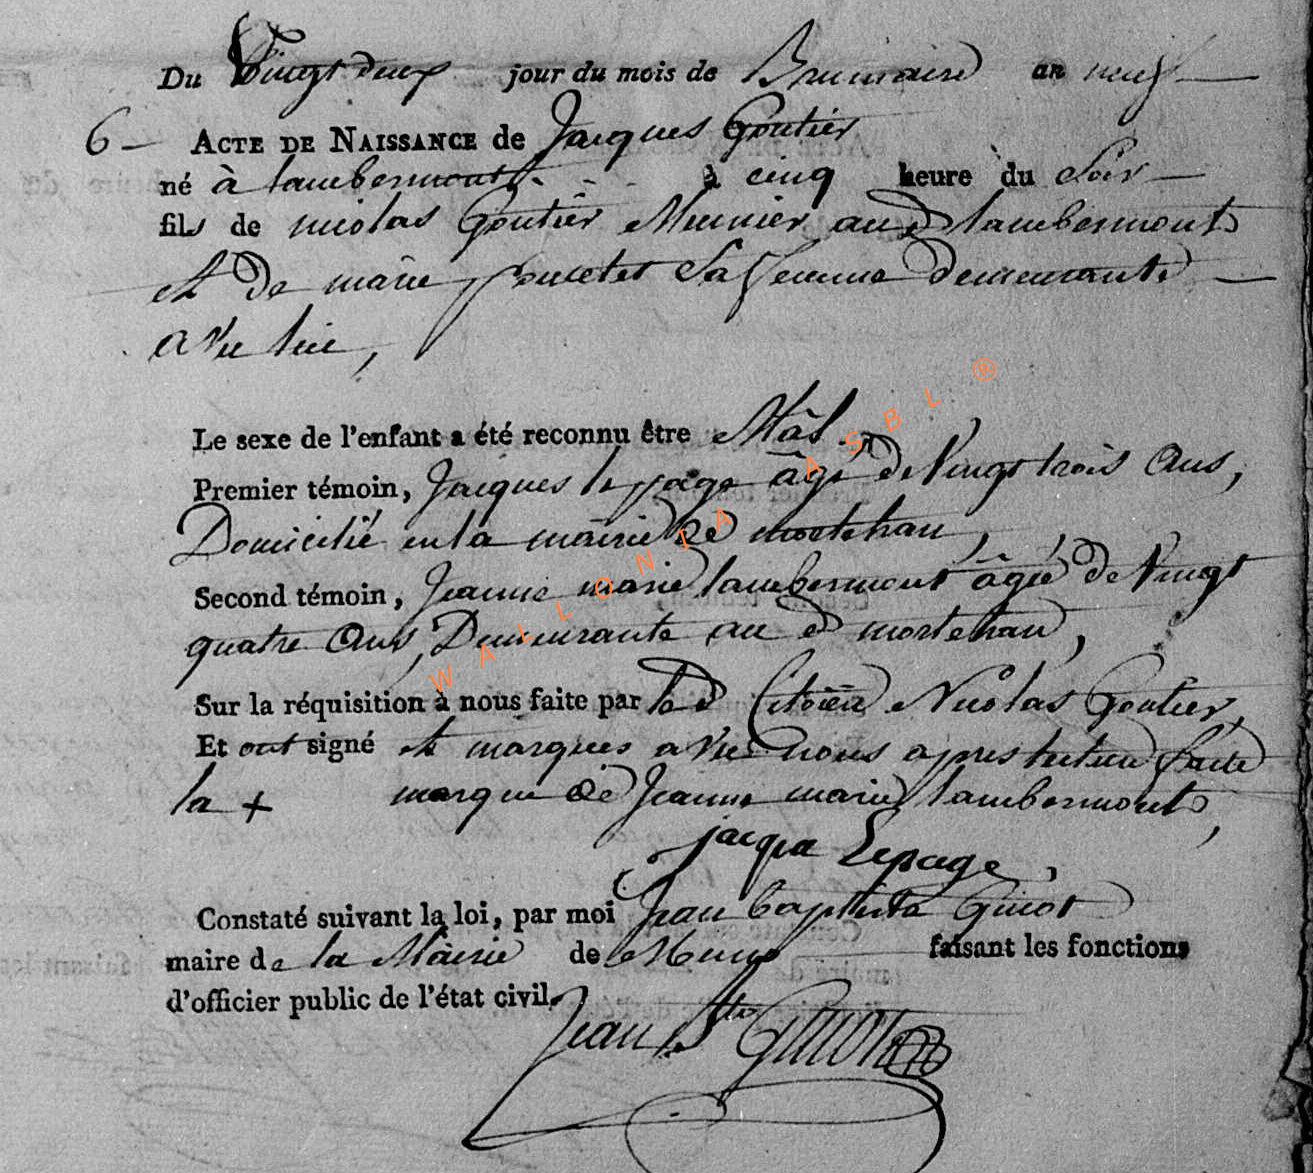 Du Vingt deux jour du mois de Brumaire an neuf
6 ACTE DE NAISSANCE de Jacques Goutier
né à lambermont à cinq heure du Soir
fils de nicolas Goutier Meunier aud lambermont
et de marie poncelet Sa femme demeurante
avec lui,
Le sexe de l'enfant a été reconnu être Mâl
Premier témoin, Jacques le page âgé de Vingt trois ans,
Domicilié en la mairie de mortehan,
Second témoin, Jeanne marie lambermont âgée de Vingt
quatre ans, Demeurante au d mortehan,
Sur la réquisition à nous faite par le d Citoien Nicolas Goutier,
Et ont signé et marqués avec nous apres lecture faite
la + marque de Jeanne marie lambermont,
jacque Lepage,
Constaté suivant la loi, par moi Jean baptiste Guiot
maire de la Mairie de Muno faisant les fonctions
d'officier public de l'état civil.
Jean Bte GUIOT
WALLONIA ASBL ®